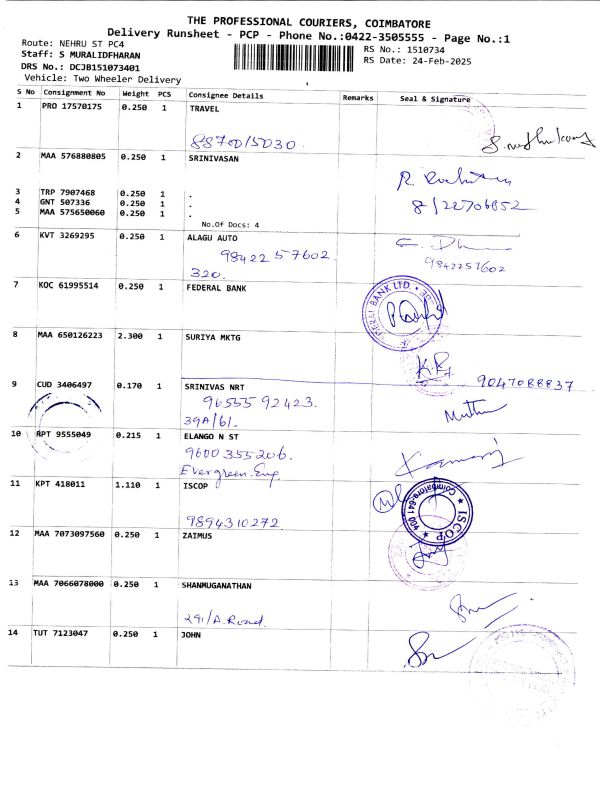 THE PROFESSIONAL COURIERS, COIMBATORE
Delivery Runsheet - PCP - Phone No.:0422-3505555 - Page No.:1
Route: NEHRU ST PC4
Staff: S MURALIDFHARAN
DRS No.: DCJB151073401
Vehicle: Two Wheeler Delivery
RS No.: 1510734
RS Date: 24-Feb-2025
S No Consignment No Weight PCS Consignee Details Remarks Seal & Signature
1 PRO 17570175 0.250 1 TRAVEL
8870015030
2 MAA 576880805 0.250 1 SRINIVASAN
3 TRP 7907468 0.250 1 .
4 GNT 507336 0.250 1 .
5 MAA 575650060 0.250 1 .
No.Of Docs: 4
6 KVT 3269295 0.250 1 ALAGU AUTO
98422 57602
9842257602
320.
7 KOC 61995514 0.250 1 FEDERAL BANK
BANK LTD
8 MAA 650126223 2.300 1 SURIYA MKTG
9047088837
9 CUD 3406497 0.170 1 SRINIVAS NRT
96555 92423.
39A/61.
10 RPT 9555049 0.215 1 ELANGO N ST
9600355206.
Evergreen.Eng
11 KPT 418011 1.110 1 ISCOP
9894310272.
ISCOP
Coimbatore-641 004
12 MAA 7073097560 0.250 1 ZAIMUS
13 MAA 7066078000 0.250 1 SHANMUGANATHAN
291/A.Road.
14 TUT 7123047 0.250 1 JOHN